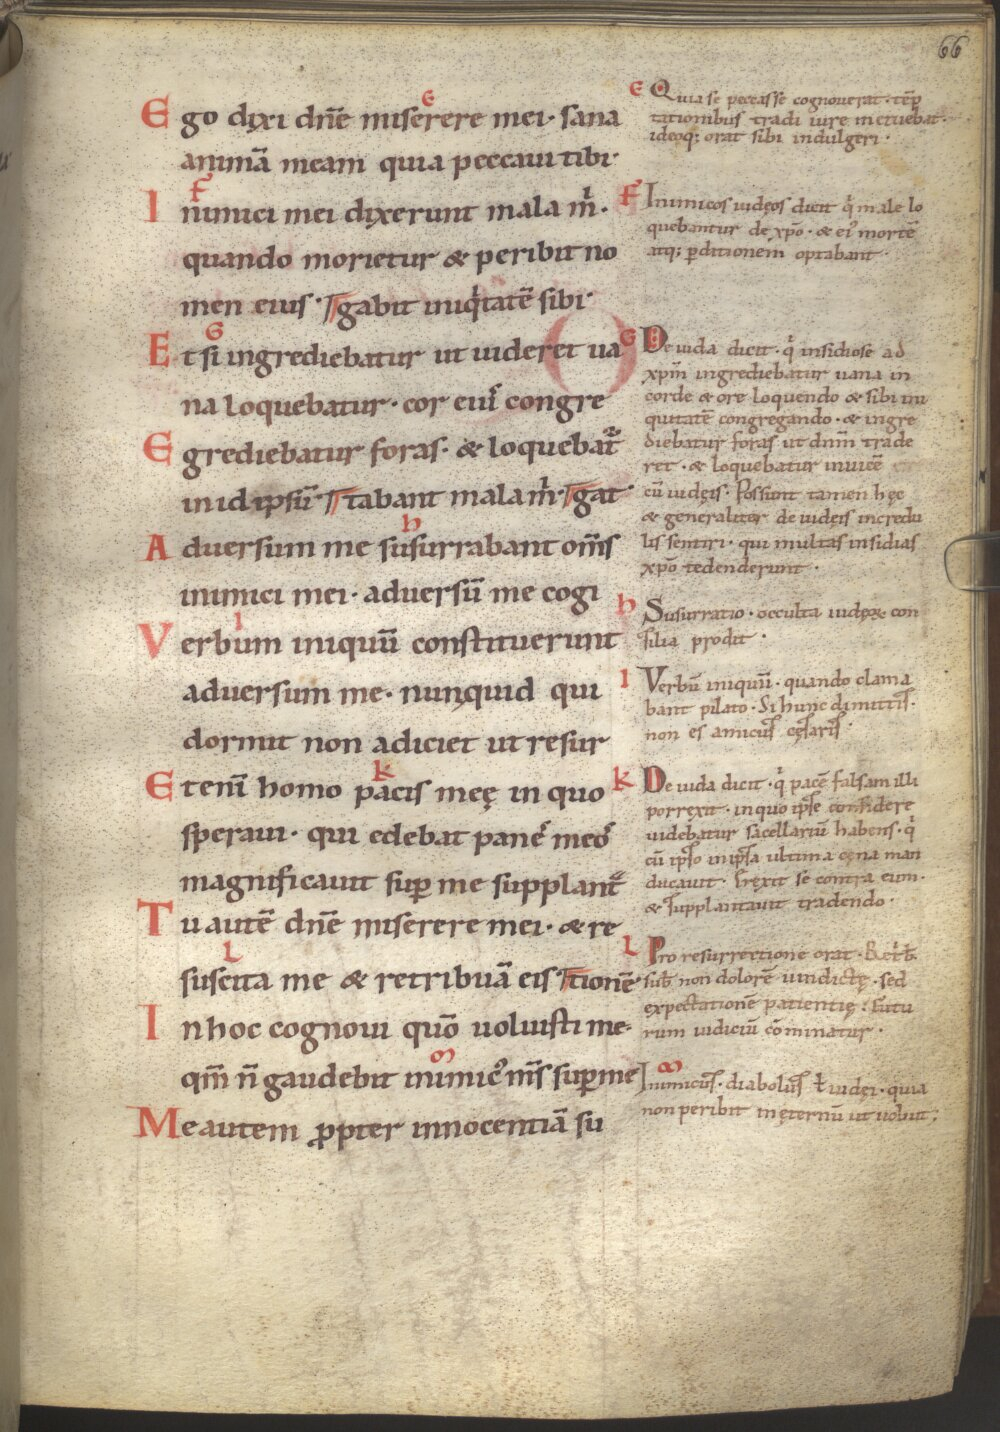 66
Ego dixi dn̄e miserere mei· sana
animā meam quia peccaui tibi·
Inimici mei dixerunt mala m̄·
quando morietur & peribit no
men eius· gabit iniqͥtatē sibi·
Et si ingrediebatur ut uideret ua
na loquebatur· cor eiuſ congre
Egrediebatur foras· & loquebat᷑
in id ipsū· tabant mala m̄· gat
Aduersum me susurrabant om̄s
inimici mei· aduersū me cogi
Verbum iniquū constituerunt
aduersum me· nunquid qui
dormit non adiciet ut resur
Etenī homo pacis meę in quo
speraui· qui edebat panē meō
magnificauit suꝑ me supplant᷑
Tu autē dn̄e miserere mei· & re
suscita me & retribuā eis· tionē·
In hoc cognoui quō uoluisti me·
qm̄ n̄ gaudebit inimicꝰ m̄s suꝑ me
Me autem ꝓpter innocentiā su
e Quia se peccasse cognouerat· tēp
tationibus tradi iure metuebat·
ideoq; orat sibi indulgeri·
f Inimicos iudęos dicit qͥ male lo
quebantur de xp̄o· & eiꝰ mortē
atq; ꝑditionem optabant·
g De iuda dicit· qͥ insidiose ad
xp̄m ingrediebatur uana in
corde & ore loquendo & sibi ini
quitatē congregando· & ingre
diebatur foras ut dn̄m trade
ret· & loquebatur inuicē
cū iudęis· Possunt tamen hęc
& generaliter de iudęis incredu
lis sentiri· qui multas insidias
xp̄o tedenderunt·
h Susurratio· occulta iudęoꝝ con
silia prodit·
i Verbū iniquū· quando clama
bant pilato· Si hunc dimittis·
non es amicus cęsaris·
k De iuda dicit· qͥ pacē falsam illi
porrexit· in quo ipse confidere
uidebatur sacellariū habens· qͥ
cū ipso in ipsa ultima cęna man
ducauit· Erexit se contra eum·
& supplantauit tradendo·
l Pro resurrectione orat·
sub̄ non dolorē uindictę· sed
expectationē patientię· Futu
rum iudiciū cōminatur·
m Inimicus· diabolus ł iudęi· quia
non peribit in ęternū ut uoluit;